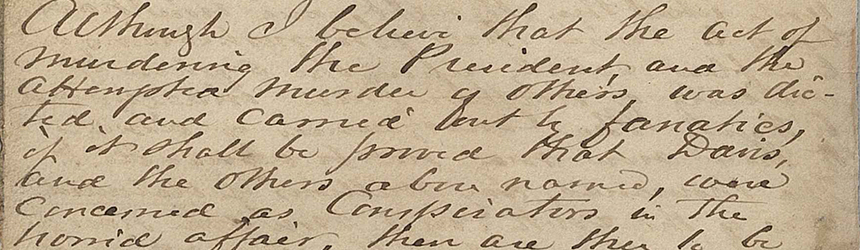 Although I believe that the act of
murdering the President, and the
attempted murder of others, was dic-
ted and carried out by fanatics,
if it shall be proved that Davis,
and the others above named, were
concerned as Conspirators in the
horrid affair, then are they to be